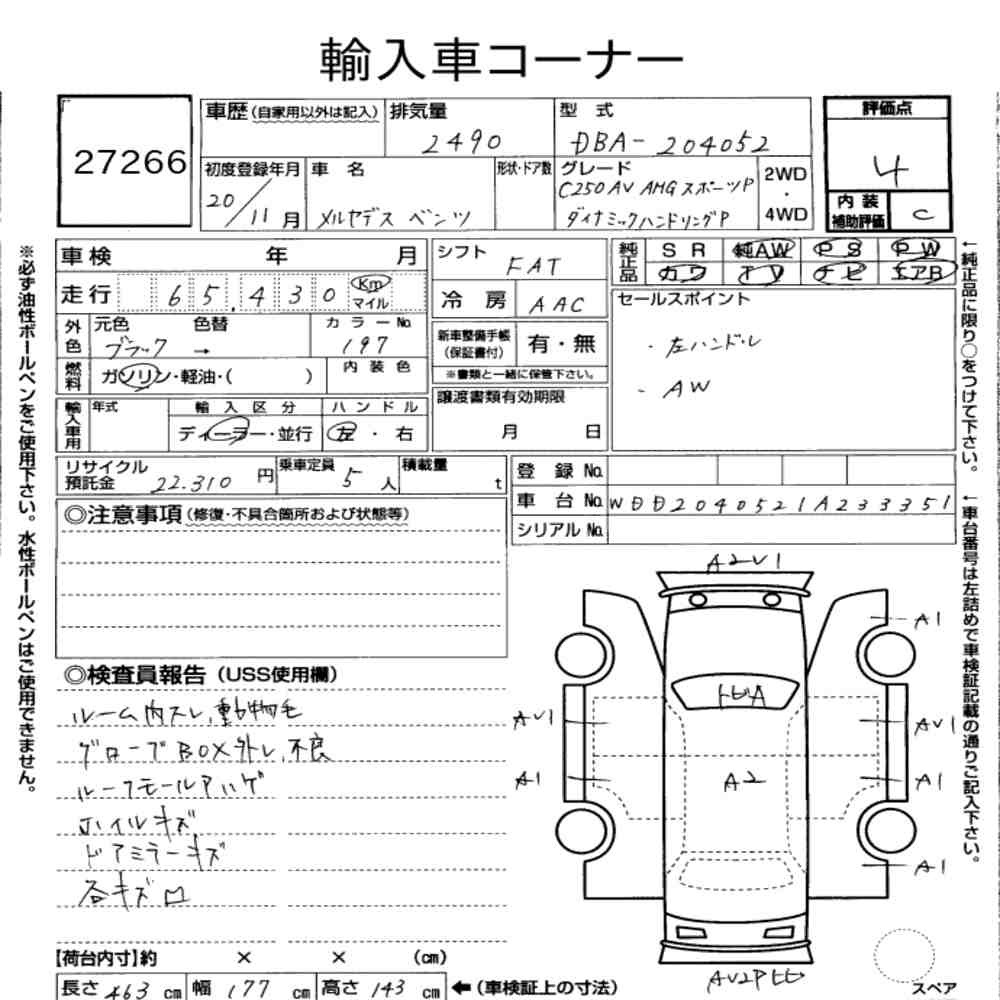 輸入車コーナー
27266
車歴(自家用以外は記入) 排気量 2490
型式 DBA-204052
評価点 4
内装補助評価 C
初度登録年月 20/11月
車名 メルセデス ベンツ
形状・ドア数
グレード C250 AV AMGスポーツP
ダイナミックハンドリングP
2WD・4WD
車検 年 月
走行 65,430 Km マイル
シフト FAT
冷房 AAC
純正品 SR 純AW PS PW
カワ TV ナビ エアB
外色 元色 ブラック 色替 →
カラーNo. 197
燃料 ガソリン・軽油・( )
内装色
新車整備手帳(保証書付) 有・無
※書類と一緒に保管下さい。
セールスポイント
・左ハンドル
・AW
輸入車用 年式
輸入区分 ディーラー・並行
ハンドル 左・右
譲渡書類有効期限
月 日
リサイクル預託金 22.310円
乗車定員 5人
積載量 t
登録No.
車台No. WDD2040521A233351
シリアルNo.
◎注意事項(修復・不具合箇所および状態等)
◎検査員報告(USS使用欄)
ルーム内スレ、動物毛
グローブBOX外レ、不良
ルーフモールアハゲ
ホイルキズ
ドアミラーキズ
各キズ ロ
A2V1
A1
トビA
AV1
AV1
A1
A2
A1
A1
スペア
【荷台内寸】約 × × (cm)
長さ 463 cm 幅 177 cm 高さ 143 cm ←(車検証上の寸法)
※必ず油性ボールペンをご使用下さい。水性ボールペンはご使用できません。
←純正品に限り○をつけて下さい。
←車台番号は左詰めで車検証記載の通りご記入下さい。